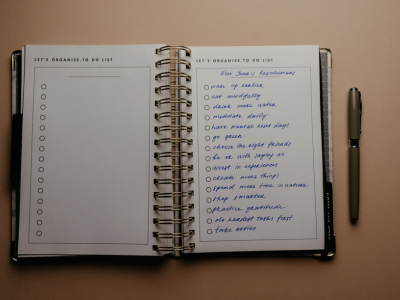 LET'S ORGANISE.TO DO LIST
LET'S ORGANISE.TO DO LIST
New Year's Resolutions
wake up earlier
eat mindfully
drink more water
meditate daily
have mental reset days
go green
choose the right friends
be ok with saying no
invest in experiences
create more things
spend more time in nature
shop smarter
practice gratitude
do hardest tasks first
take action